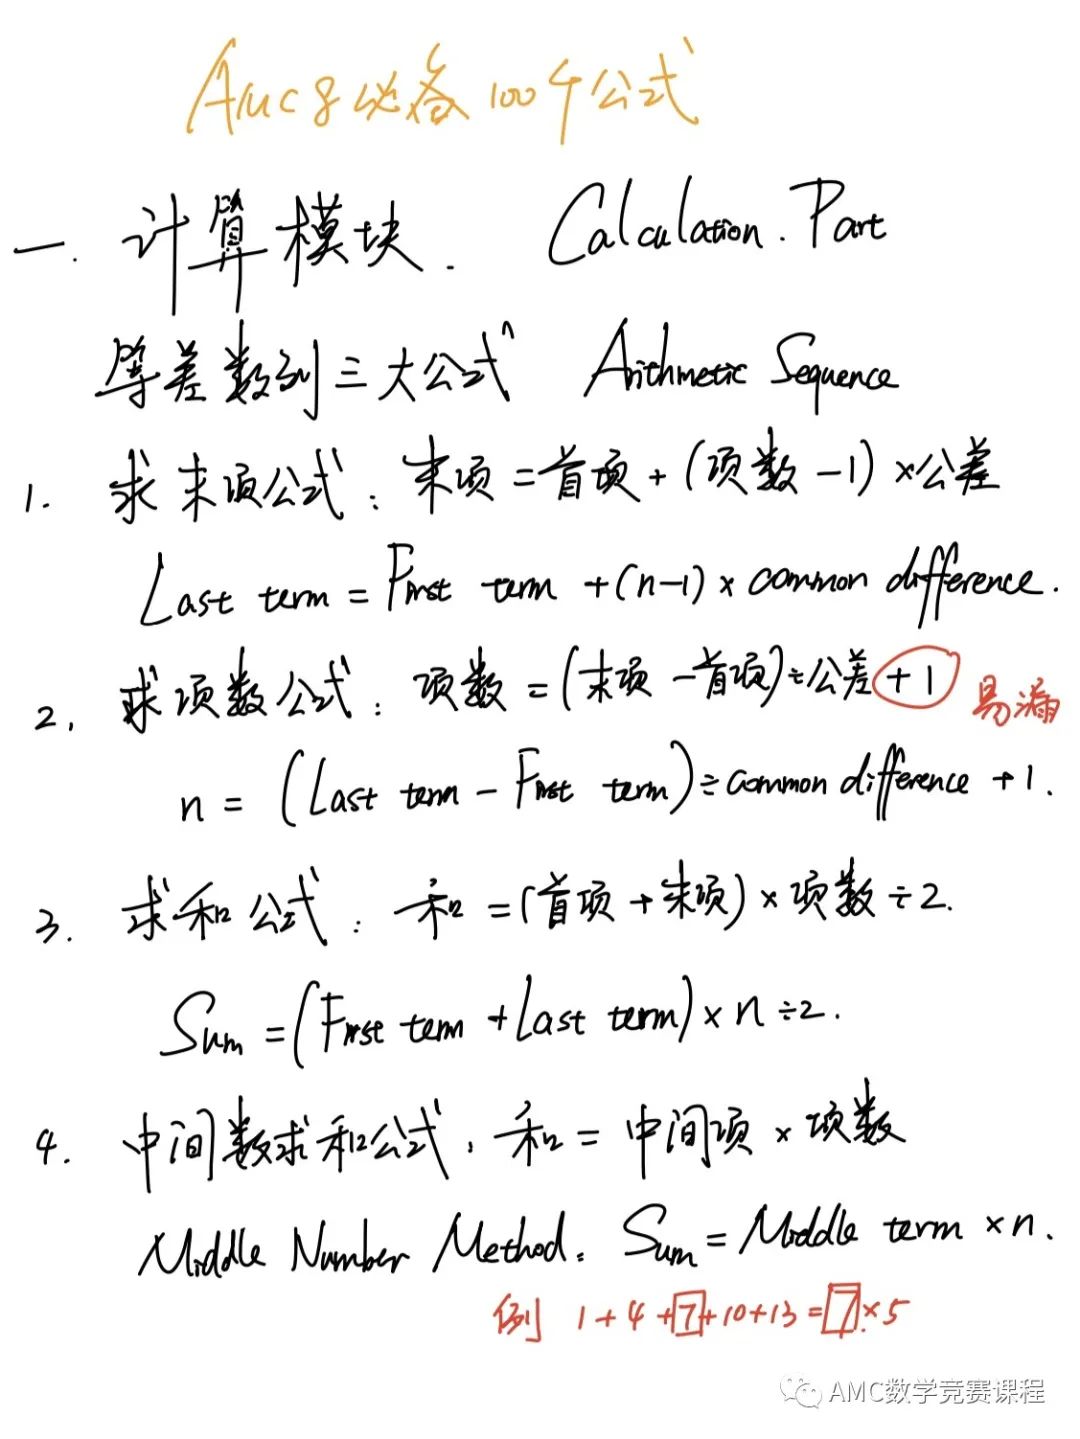 AMC8必备100个公式
一. 计算模块. Calculation. Part
等差数列三大公式 Arithmetic Sequence
1. 求末项公式: 末项=首项+(项数-1)×公差
Last term = First term +(n-1)× common difference.
2. 求项数公式: 项数=(末项-首项)÷公差+1 易漏
n = (Last term - First term)÷common difference +1.
3. 求和公式: 和=(首项+末项)×项数÷2.
Sum =(First term +Last term)×n÷2.
4. 中间数求和公式: 和=中间项×项数
Middle Number Method: Sum=Middle term ×n.
例 1+4+7+10+13=7×5
AMC数学竞赛课程